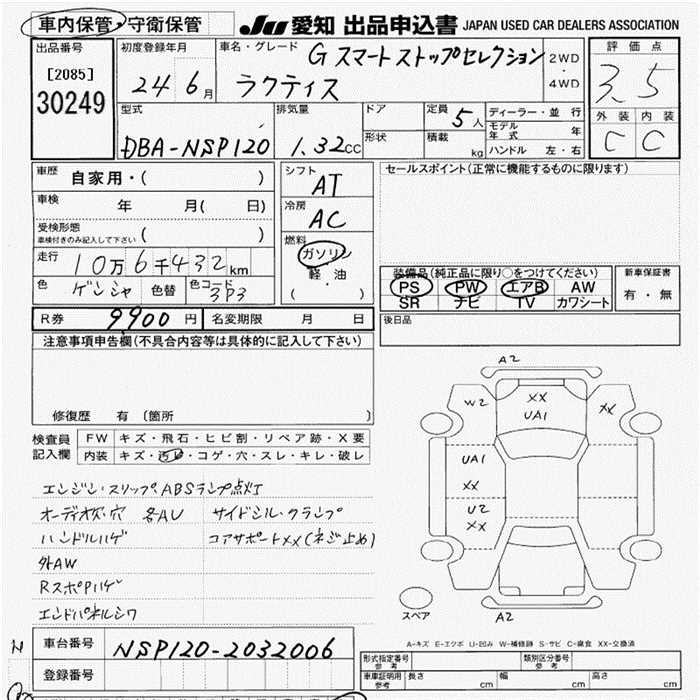 車内保管・守衛保管 JU 愛知 出品申込書 JAPAN USED CAR DEALERS ASSOCIATION
出品番号 初度登録年月 車名・グレード G スマートストップセレクション 2WD・4WD 評価点
[2085] 24 6月 ラクティス 3.5
30249 型式 排気量 ドア 定員 5人 ディーラー・並行 外装 内装
DBA-NSP120 1.32cc 形状 積載 kg モデル年式 年 C C
ハンドル 左・右
車歴 自家用・( ) シフト AT セールスポイント(正常に機能するものに限ります)
車検 年 月( 日) 冷房 AC
受検形態 ( )
車検付きのみ記入して下さい
燃料 ガソリン・軽油・( )
走行 10万6千432km
色 ゲンシャ 色替 色コード 3P3
装備品(純正品に限り○をつけてください) 新車保証書
PS PW エアB AW 有・無
SR ナビ TV カワシート
R券 9900円 名変期限 月 日 後日品
注意事項申告欄(不具合内容等は具体的に記入して下さい)
修復歴 有 (箇所 )
検査員記入欄 FW キズ・飛石・ヒビ割・リペア跡・X要
内装 キズ・汚レ・コゲ・穴・スレ・キレ・破レ
エンジン・スリップABSランプ点灯
オーディオ欠・穴 各AU サイドシル・クランプ
ハンドルハゲ コアサポートXX(ネジ止め)
外AW
RスポPハゲ
エンドパネルシワ
A2
W2 XX XX
UA1
UA1
XX
U2
XX
スペア A2
A-キズ E-エクボ U-凹み W-補修跡 S-サビ C-腐食 XX-交換済
N 車台番号 NSP120-2032006
登録番号
形式指定番号 参考 類別区分番号 参考
車庫証明用 参考 長さ cm 幅 cm 高さ cm